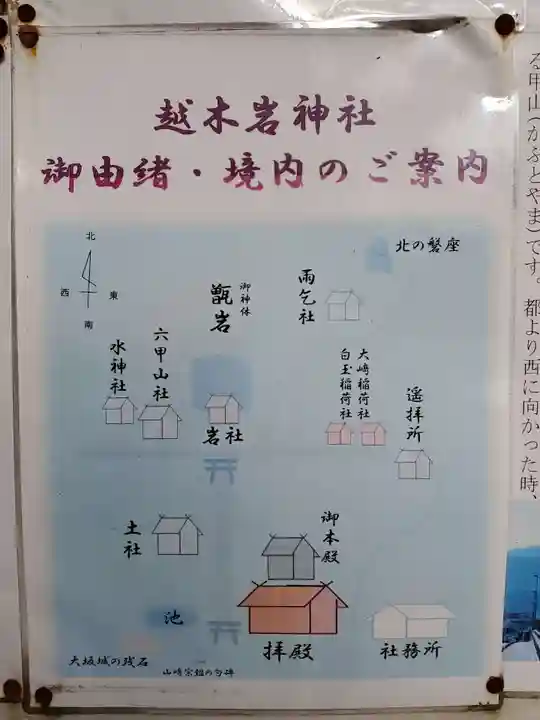 越木岩神社
御由緒・境内のご案内
北
西
東
南
北の磐座
雨乞社
御神体
甑岩
六甲山社
水神社
岩社
大崎稲荷社
白玉稲荷社
遥拝所
土社
御本殿
池
拝殿
社務所
大坂城の残石
山崎宗鑑の句碑
る甲山(かぶとやま)です。都より西に向かった時、